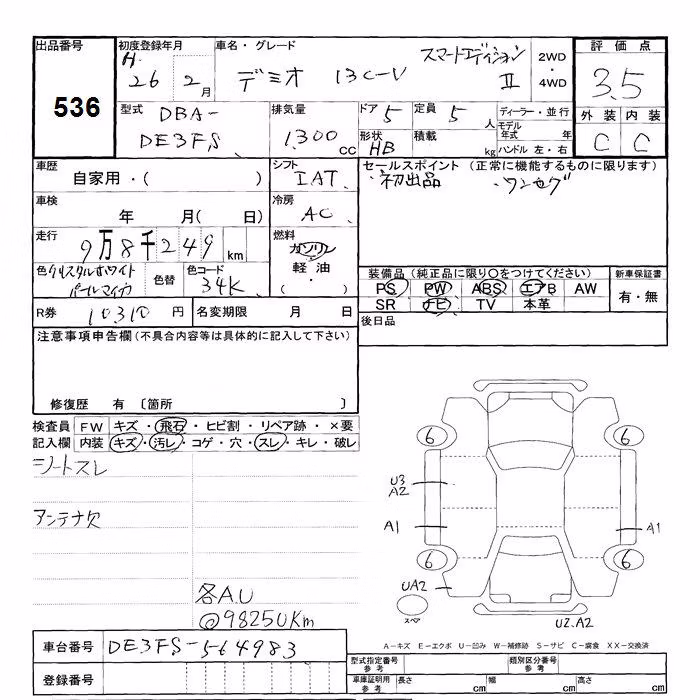 出品番号 初度登録年月 車名・グレード 評価点
536
H.
26 2月 デミオ 13C-V スマートエディション Ⅱ
2WD・4WD
3.5
型式 DBA-
DE3FS
排気量 1,300 cc
ドア 5 定員 5 人
形状 HB 積載 kg
ディーラー・並行
モデル年式 年
ハンドル 左・右
外装 内装
C C
車歴 自家用・( )
シフト IAT
セールスポイント (正常に機能するものに限ります)
・初出品 ・ワンセグ
車検 年 月( 日)
冷房 AC
走行 9万8千249 km
燃料 ガソリン
軽油・
( )
色 クリスタルホワイト
パールマイカ
色替 色コード 34K
装備品 (純正品に限り○をつけてください) 新車保証書
PS PW ABS エアB AW
SR ナビ TV 本革
有・無
R券 10310 円 名変期限 月 日
後日品
注意事項申告欄 (不具合内容等は具体的に記入して下さい)
修復歴 有 〔箇所 〕
検査員 FW キズ・飛石・ヒビ割・リペア跡・×要
記入欄 内装 キズ・汚レ・コゲ・穴・スレ・キレ・破レ
シートスレ
アンテナ欠
各A.U
@98250Km
6 6
U3
A2
A1 A1
6 6
UA2
スペア
U2.A2
A-キズ E-エクボ U-凹み W-補修跡 S-サビ C-腐食 XX-交換済
車台番号 DE3FS-564983
登録番号
型式指定番号 参考 類別区分番号 参考
車庫証明用 参考 長さ cm 幅 cm 高さ cm